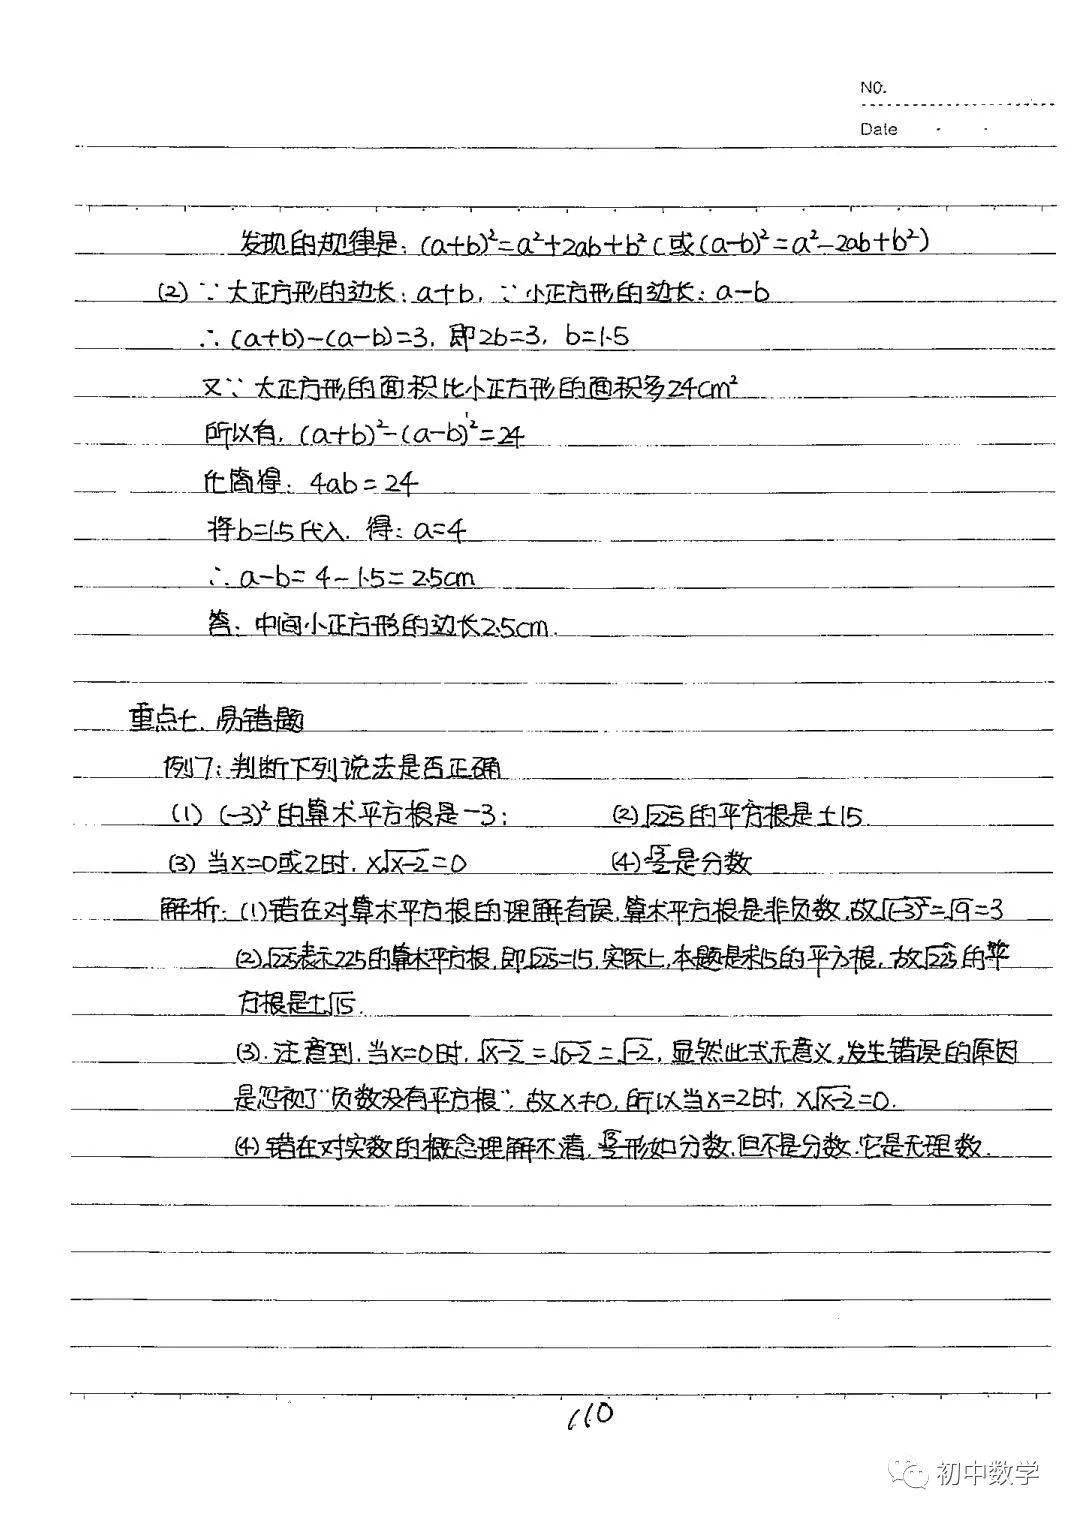 NO.
Date
发现的规律是：(a+b)²=a²+2ab+b²(或(a-b)²=a²-2ab+b²)
(2) ∵大正方形的边长：a+b，∵小正方形的边长：a-b
∴(a+b)-(a-b)=3，即2b=3，b=1.5
又∵大正方形的面积比小正方形的面积多24cm²
所以有，(a+b)²-(a-b)²=24
化简得：4ab=24
将b=1.5代入，得：a=4
∴a-b=4-1.5=2.5cm
答：中间小正方形的边长2.5cm.
重点七、易错题
例7：判断下列说法是否正确
(1) (-3)²的算术平方根是-3； (2)√225的平方根是±15.
(3) 当x=0或2时，x√x-2=0 (4)√3/2是分数
解析：(1)错在对算术平方根的理解有误，算术平方根是非负数，故√(-3)²=√9=3
(2)√225表示225的算术平方根，即√225=15，实际上，本题是求15的平方根，故√225的平
方根是±√15.
(3).注意到，当x=0时，√x-2=√0-2=√-2，显然此式无意义，发生错误的原因
是忽视了"负数没有平方根"，故x≠0，所以当x=2时，x√x-2=0.
(4)错在对实数的概念理解不清，√3/2形如分数，但不是分数，它是无理数.
110
初中数学